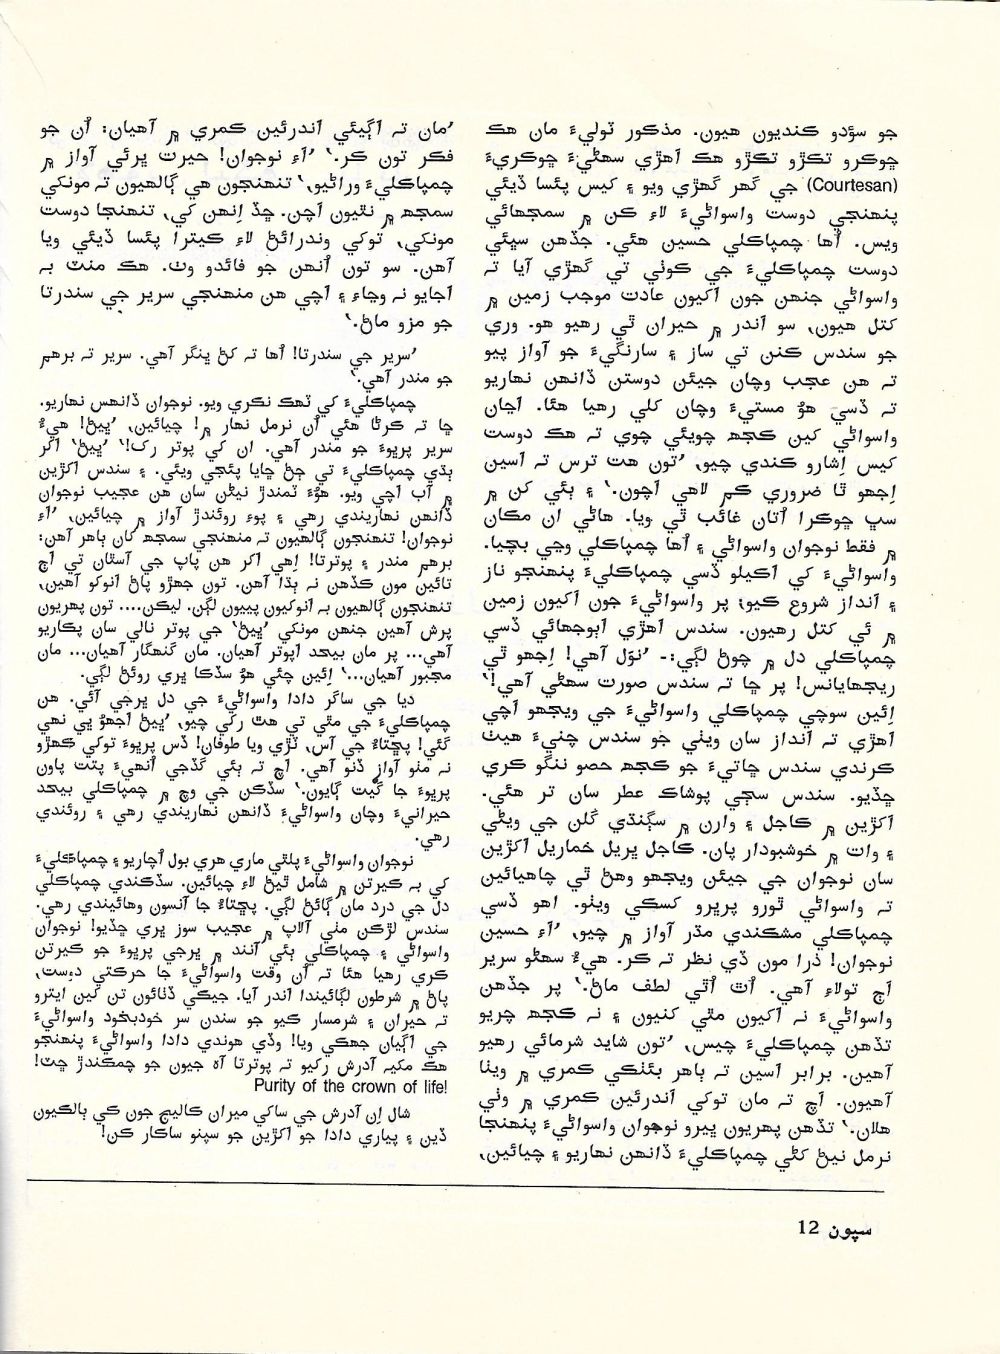 جو سؤدو ڪنديون هيون. مذڪور ٽوليءَ مان هڪ
ڇوڪرو تڪڙو تڪڙو هڪ اهڙي سهڻيءَ ڇوڪريءَ
(Courtesan) جي گهر گهڙي ويو ۽ کيس پئسا ڏيئي
پنهنجي دوست واسواڻيءَ لاءِ ڪن ۾ سمجهائي
ويس. اُها چمپاڪلي حسين هئي. جڏهن سڀئي
دوست چمپاڪليءَ جي ڪوٺي تي گهڙي آيا تہ
واسواڻي جنهن جون اکيون عادت موجب زمين ۾
کتل هيون، سو اندر ۾ حيران ٿي رهيو هو. وري
جو سندس ڪنن تي ساز ۽ سارنگيءَ جو آواز پيو
تہ هن عجب وچان جيئن دوستن ڏانهن نهاريو
تہ ڏسي هؤ مستيءَ وچان کلي رهيا هئا. اڃان
واسواڻي کين ڪجهہ چويئي چوي تہ هڪ دوست
کيس اِشارو ڪندي چيو، ’تون هت ترس تہ اسين
اِجهو ٿا ضروري ڪم لاهي اچون.‘ ۽ ٻئي کن ۾
سڀ ڇوڪرا اُتان غائب ٿي ويا. هاڻي ان مڪان
۾ فقط نوجوان واسواڻي ۽ اُها چمپاڪلي وڃي بچيا.
واسواڻيءَ کي اڪيلو ڏسي چمپاڪليءَ پنهنجو ناز
۽ انداز شروع ڪيو؛ پر واسواڻيءَ جون اکيون زمين
۾ ئي کتل رهيون. سندس اهڙي اٻوجهائي ڏسي
چمپاڪلي دل ۾ چوڻ لڳي:- ’نوَل آهي! اِجهو ٿي
ريجهايانس! پر ڇا تہ سندس صورت سهڻي آهي!‘
اِئين سوچي چمپاڪلي واسواڻيءَ جي ويجهو اچي
اهڙي تہ انداز سان ويٺي جو سندس چنيءَ هيٺ
ڪرندي سندس ڇاتيءَ جو ڪجهہ حصو ننگو ڪري
ڇڏيو. سندس سڄي پوشاڪ عطر سان تر هئي.
اکڙين ۾ ڪاجل ۽ وارن ۾ سڳنڌي گلن جي ويڻي
۽ وات ۾ خوشبودار پان. ڪاجل ڀريل خماريل اکڙين
سان نوجوان جي جيئن ويجهو وهڻ ٿي چاهيائين
تہ واسواڻي ٿورو پرڀرو کسڪي ويٺو. اهو ڏسي
چمپاڪلي مشڪندي مڌر آواز ۾ چيو، ’اَءِ حسين
نوجوان! ذرا مون ڏي نظر تہ ڪر. هيءُ سهڻو سرير
اڄ تولاءِ آهي. اُٿ اُٿي لطف ماڻ.‘ پر جڏهن
واسواڻيءَ نہ اکيون مٿي کنيون ۽ نہ ڪجهہ چريو
تڏهن چمپاڪليءَ چيس، ’تون شايد شرمائي رهيو
آهين. برابر اسين تہ ٻاهر بئٺڪي ڪمري ۾ ويٺا
آهيون. اچ تہ مان توکي اندرئين ڪمري ۾ وٺي
هلان.‘ تڏهن پهريون ڀيرو نوجوان واسواڻيءَ پنهنجا
نرمل نيڻ کڻي چمپاڪليءَ ڏانهن نهاريو ۽ چيائين،
’مان تہ اڳيئي اندرئين ڪمري ۾ آهيان: اُن جو
فڪر تون ڪر.‘ ’اَءِ نوجوان! حيرت ڀرئي آواز ۾
چمپاڪليءَ وراڻيو،‘ تنهنجون هي ڳالهيون تہ مونکي
سمجهہ ۾ نٿيون اچن. ڇڏ اِنهن کي، تنهنجا دوست
مونکي، توکي وندرائڻ لاءِ ڪيترا پئسا ڏيئي ويا
آهن. سو تون اُنهن جو فائدو وٺ. هڪ منٽ بہ
اجايو نہ وڃاءِ ۽ اچي هن منهنجي سرير جي سندرتا
جو مزو ماڻ.‘
’سرير جي سندرتا! اُها تہ کڻ ڀنگر آهي. سرير تہ برهم
جو مندر آهي.‘
چمپاڪليءَ کي ٽهڪ نڪري ويو. نوجوان ڏانهس نهاريو.
ڇا تہ ڪرڻا هئي اُن نرمل نهار ۾! چيائين، ’ڀيڻ! هيءُ
سرير پرڀوءَ جو مندر آهي. ان کي پوتر رک!‘ ’ڀيڻ‘ اکر
ٻڌي چمپاڪليءَ تي ڄڻ ڇايا پئجي ويئي. ۽ سندس اکڙين
۾ آب اچي ويو. هوُءَ ٽمندڙ نيڻن سان هن عجيب نوجوان
ڏانهن نهاريندي رهي ۽ پوءِ روئندڙ آواز ۾ چيائين، ’اَءِ
نوجوان! تنهنجون ڳالهيون تہ منهنجي سمجهہ کان ٻاهر آهن:
برهم مندر ۽ پوترتا! اِهي اکر هن پاپ جي آستان تي اڄ
تائين مون ڪڏهن نہ ٻڌا آهن. تون جهڙو پاڻ انوکو آهين،
تنهنجون ڳالهيون بہ انوکيون پييون لڳن. ليڪن.... تون پهريون
پرش آهين جنهن مونکي ’ڀيڻ‘ جي پوتر نالي سان پڪاريو
آهي... پر مان بيحد اپوتر آهيان. مان گنهگار آهيان... مان
مجبور آهيان...‘ اِئين چئي هوُ سڏڪا ڀري روئڻ لڳي.
ديا جي ساگر دادا واسواڻيءَ جي دل ڀرجي آئي. هن
چمپاڪليءَ جي مٿي تي هٿ رکي چيو، ’ڀيڻ اجهوُ ٻي نهي
گئي! پڇتاءُ جي آس، ٽڙي ويا طوفان! ڏس پرڀوءَ توکي ڪهڙو
نہ مٺو آواز ڏنو آهي. اچ تہ ٻئي گڏجي اُنهيءَ پتت پاون
پرڀوءَ جا گيت ڳايون.‘ سڏڪن جي وچ ۾ چمپاڪلي بيحد
حيرانيءَ وچان واسواڻيءَ ڏانهن نهاريندي رهي ۽ روئندي
رهي.
نوجوان واسواڻيءَ پلٿي ماري هري ٻول اُچاريو ۽ چمپاڪليءَ
کي بہ ڪيرتن ۾ شامل ٿيڻ لاءِ چيائين. سڏڪندي چمپاڪلي
دل جي درد مان ڳائڻ لڳي. پڇتاءُ جا آنسون وهائيندي رهي.
سندس لڙڪن مٺي آلاپ ۾ عجيب سوز ڀري ڇڏيو! نوجوان
واسواڻي ۽ چمپاڪلي ٻئي آنند ۾ ڀرجي پرڀوءَ جو ڪيرتن
ڪري رهيا هئا تہ اُن وقت واسواڻيءَ جا حرڪتي دوست،
پاڻ ۾ شرطون لڳائيندا اندر آيا. جيڪي ڏٺائون تن کين ايترو
تہ حيران ۽ شرمسار ڪيو جو سندن سر خودبخود واسواڻيءَ
جي اڳيان جهڪي ويا! وڏي هوندي دادا واسواڻيءَ پنهنجو
هڪ مکيہ آدرش رکيو تہ پوترتا آه جيون جو چمڪندڙ ڇٽ!
Purity of the crown of life!
شال اِن آدرش جي ساکي ميران ڪاليڄ جون کي ٻالڪيون
ڏين ۽ پياري دادا جو اکڙين جو سپنو ساڪار ڪن!
سپون 12